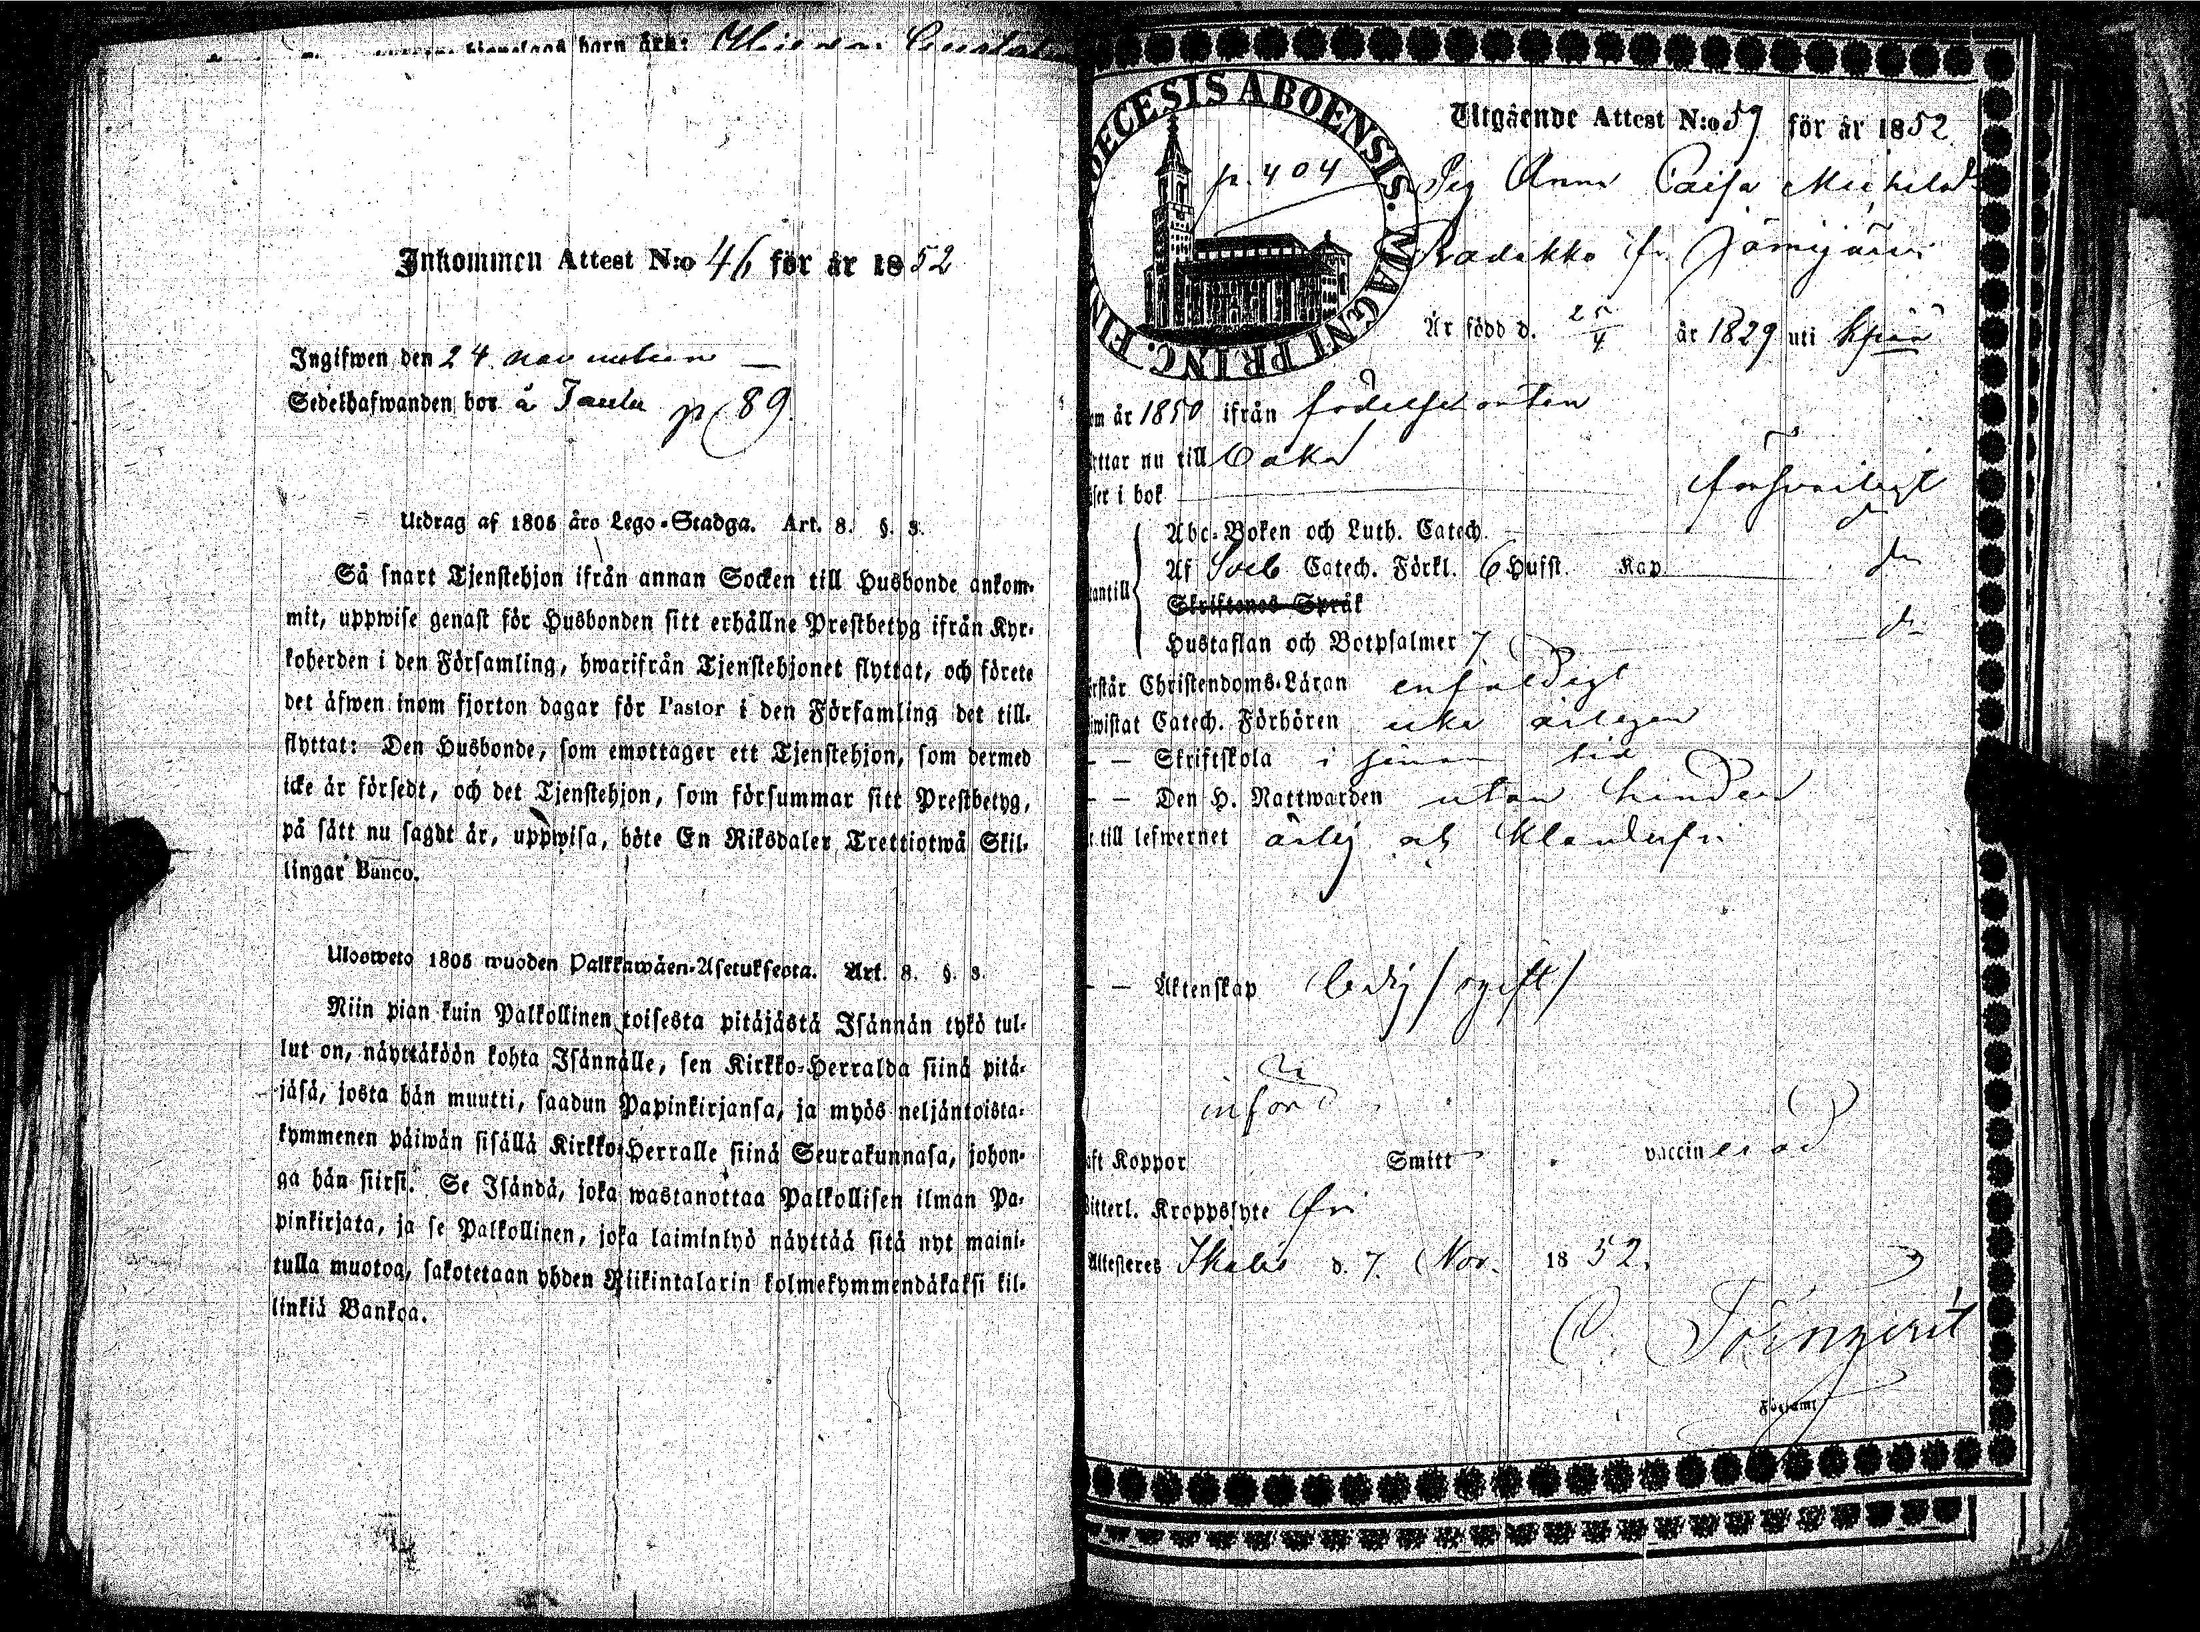 hörn
Inkommen Attest N:o 46 för år 1852
Ingifwen den 24 november
Sedelhafwanden bor å Jaula p. 89.
Utdrag af 1805 års Lego-Stadga. Art. 8. §. 3.
Så snart Tjenstehjon ifrån annan Socken till Husbonde ankom-
mit, uppwise genast för Husbonden sitt erhållne Prestbetyg ifrån Kyr-
koherden i den Församling, hwarifrån Tjenstehjonet flyttat, och förete
det äfwen inom fjorton dagar för Pastor i den Församling det till-
flyttat: Den Husbonde, som emottager ett Tjenstehjon, som dermed
icke är försedt, och det Tjenstehjon, som försummar sitt Prestbetyg,
på sätt nu sagdt är, uppwisa, böte En Riksdaler Trettiotwå Skil-
lingar Banco.
Ulosweto 1805 wuoden Palkkawäen-Asetuksesta. Art. 8. §. 3.
Niin pian kuin Palkollinen toisesta pitäjästä Isännän tykö tul-
lut on, näyttäköön kohta Isännälle, sen Kirkko-Herralda siinä pitä-
jäsä, josta hän muutti, saadun Papinkirjansa, ja myös neljäntoista-
kymmenen päiwän sisällä Kirkko-Herralle siinä Seurakunnasa, johon-
ga hän siirsi. Se Isändä, joka wastanottaa Palkollisen ilman Pa-
pinkirjata, ja se Palkollinen, joka laiminlyö näyttää sitä nyt maini-
tulla muotoa, sakotetaan yhden Riikintalarin kolmekymmendäkaksi kil-
linkiä Bankoa.
DECESIS ABOENSIS. MAGNI PRINC. FIN
p. 404
Utgående Attest N:o 59 för år 1852
Pig Anna Caisa Michelsd
fr. Jämijärvi
Är född d. 25/4 år 1829 uti
om år 1850 ifrån födelseorten
ttar nu till
ser i bok försvarligt
Abc-Boken och Luth. Catech. do
Af Sveb Catech. Förkl. 6 Hufst. Kap do
tantill
Skriftenes Språk
Hustaflan och Botpsalmer 7 do
rstår Christendoms-Läran enfaldigt
wistat Catech. Förhören icke årligen
— — Skriftskola i sinom tid
— — Den H. Nattwarden utan hinder
t till lefwernet ärlig och klanderfri
— — Äktenskap ledig /ogift/
införd
ft Koppor Smitt vaccinerad
itterl. Kroppslyte fri
Attesteres Ikalis d. 7. Nov. 1852.
Församl